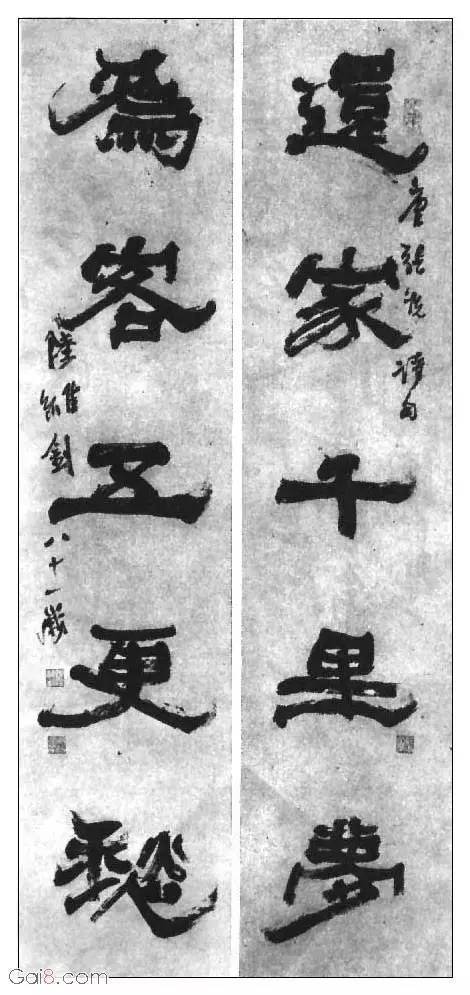 還家千里夢
唐張說詩句
爲客五更愁
陸維釗八十一歲
Gai8.com